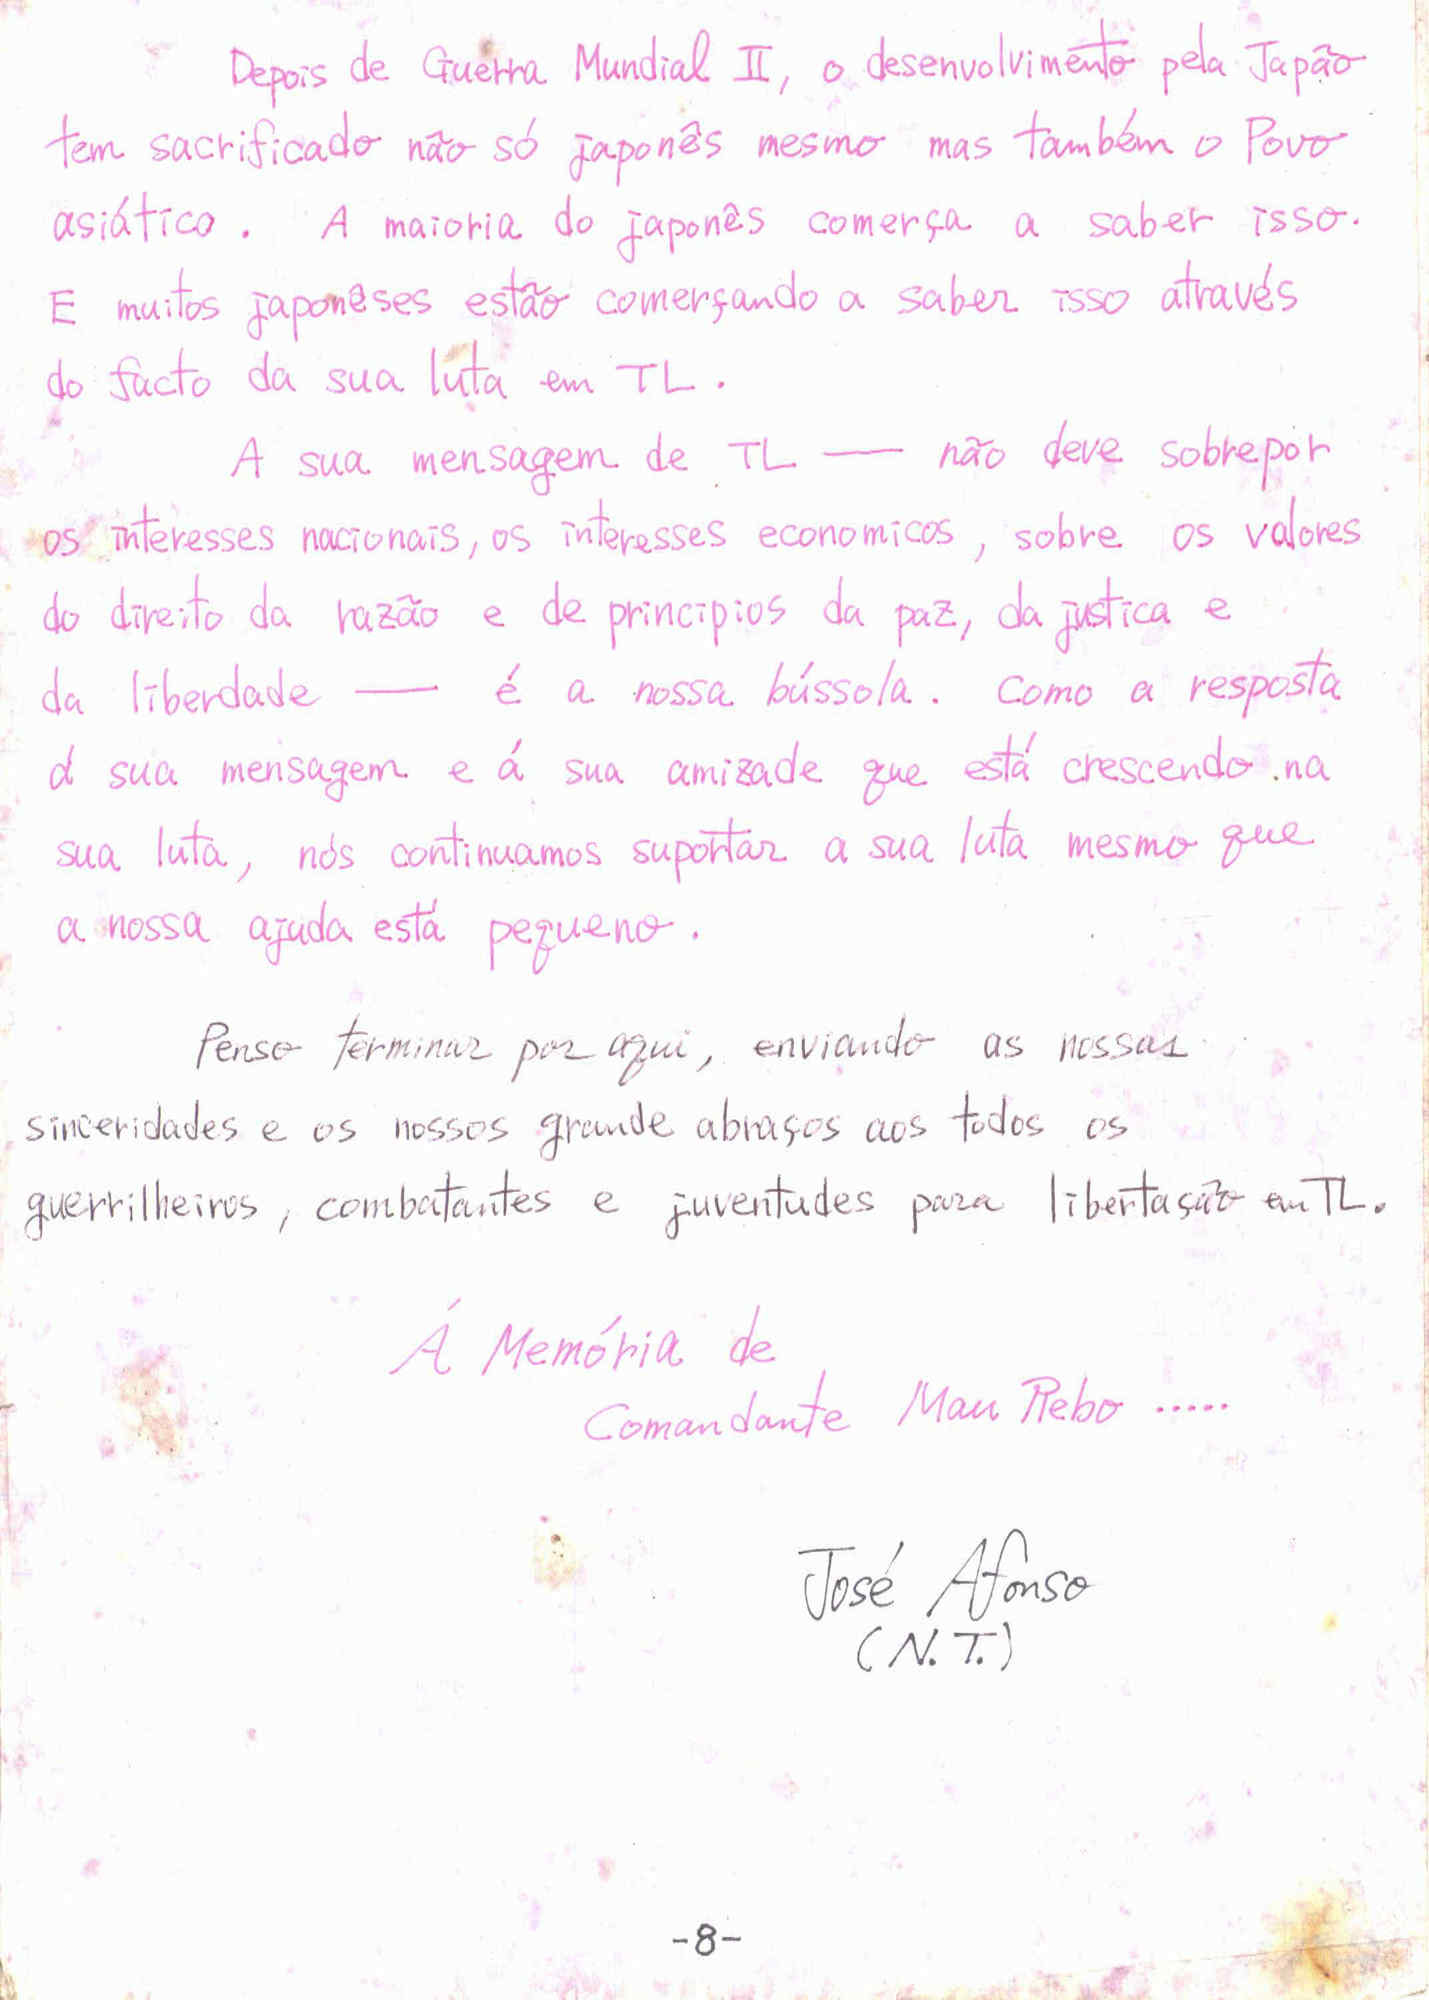 Depois de Guerra Mundial II, o desenvolvimento pela Japão
tem sacrificado não só japonês mesmo mas também o Povo
asiático. A maioria do japonês comerça a saber isso.
E muitos japonêses estão comerçando a saber isso através
do facto da sua luta em TL.
A sua mensagem de TL — não deve sobrepor
os interesses nacionais, os interesses economicos, sobre os valores
do direito da razão e de principios da paz, da justica e
da liberdade — é a nossa bússola. Como a resposta
á sua mensagem e á sua amizade que está crescendo na
sua luta, nós continuamos suportar a sua luta mesmo que
a nossa ajuda está pequeno.
Penso terminar por aqui, enviando as nossas
sinceridades e os nossos grande abraços aos todos os
guerrilheiros, combatantes e juventudes para libertação em TL.
Á Memória de
Comandante Mau Rebo .....
José Afonso
(N.T.)
-8-